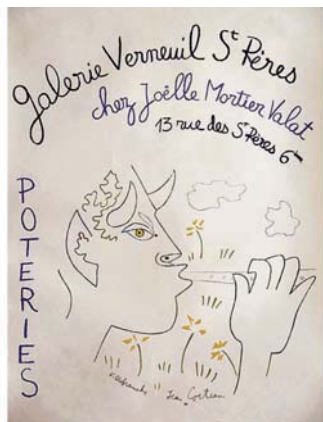 Galerie Verneuil St Pères
chez Joëlle Mortier Valat
13 rue des St Pères 6em
POTERIES
Villefranche Jean Cocteau